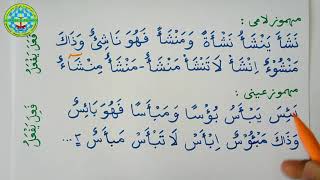 مهموز لامی :
نَشَأَ يَنْشَأُ نَشْأَةً وَمَنْشَأً فَهُوَ نَاشِئٌ وَذَاكَ
مَنْشُوْءٌ اِنْشَأْ لَا تَنْشَأْ مَنْشَأٌ-مَنْشَأٌ مِنْشَاءٌ
فَعَلَ يَفْعَلُ
مهموز عینی :
بَئِسَ يَبْأَسُ بُؤْسًا وَمَبْأَسًا فَهُوَ بَائِسٌ
وَذَاكَ مَبْئُوْسٌ اِبْأَسْ لَا تَبْأَسْ مَبْأَسٌ ٢ ...
فَعِلَ يَفْعَلُ